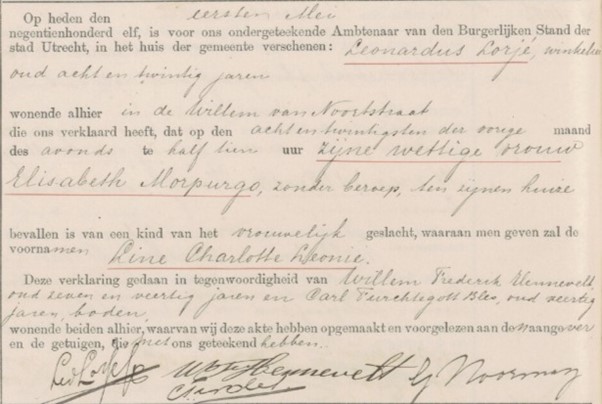 Op heden den eersten Mei
negentienhonderd elf, is voor ons ondergeteekende Ambtenaar van den Burgerlijken Stand der
stad Utrecht, in het huis der gemeente verschenen: Leonardus Lorjé, winkelier
oud acht en twintig jaren
wonende alhier in de Willem van Noortstraat
die ons verklaard heeft, dat op den acht en twintigsten der vorige maand
des avonds te half tien uur zijne wettige vrouw
Elisabeth Morpurgo, zonder beroep, ten zijnen huize
bevallen is van een kind van het vrouwelijk geslacht, waaraan men geven zal de
voornamen Line Charlotte Leonie.
Deze verklaring gedaan in tegenwoordigheid van Willem Frederik Hennevelt,
oud zeven en veertig jaren en Carl Furchtegott Bles, oud veertig
jaren, boden,
wonende beiden alhier, waarvan wij deze akte hebben opgemaakt en voorgelezen aan de aangever
en de getuigen, die met ons geteekend hebben.
Hennevelt